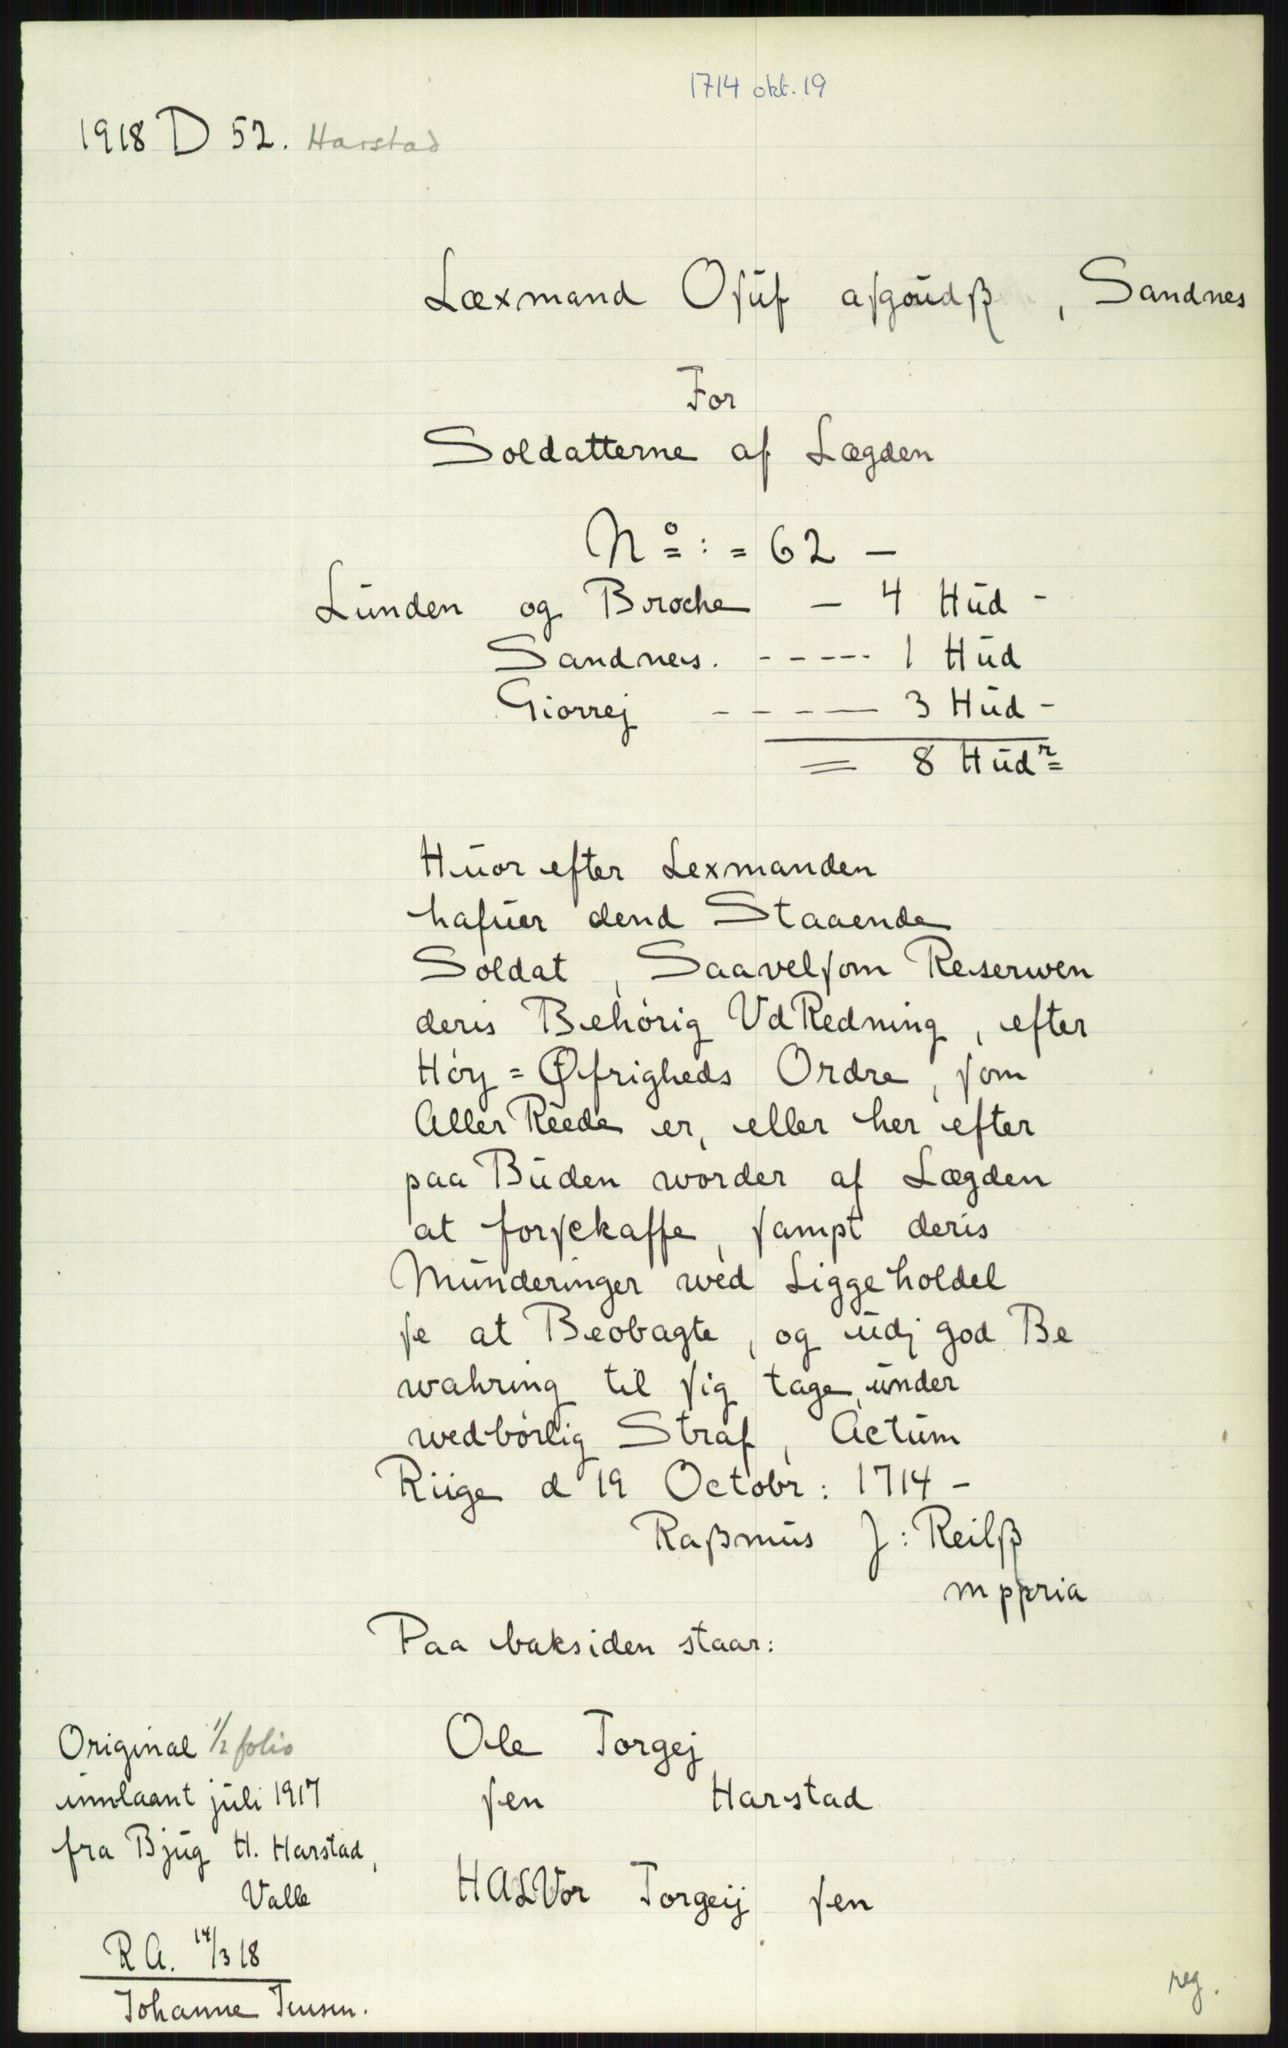 1714 okt. 19
1918 D 52. Harstad
Læxmand Oſuf aſgoudß, Sandnes
For
Soldatterne af Lægden
No: = 62 —
Lunden og Broche — 4 Hud -
Sandnes. ----- 1 Hud
Giorrej ----— 3 Hud -
= 8 Hudr
Huor efter Lexmanden
hafuer dend Staaende
Soldat, Saavelſom Reserwen
deris Behørig VdRedning, efter
Høy = Øfrigheds Ordre, ſom
AllerReede er, eller her efter
paa Buden worder af Lægden
at forſckaffe, ſampt deris
Munderinger wed Liggeholdel
ſe at Beobagte, og udj god Be
wahring til ſig tage, under
wedbørlig Straf, Actum
Riige d 19 Octobr: 1714 -
Raßmus J: Reilß
mppria
Paa baksiden staar:
Ole Torgej
ſen Harstad
HALVor Torgeij ſen
Original 1/2 folio
innlaant juli 1917
fra Bjug H. Harstad,
Valle
R A. 14/3 18
Johanne Jensen.
reg.